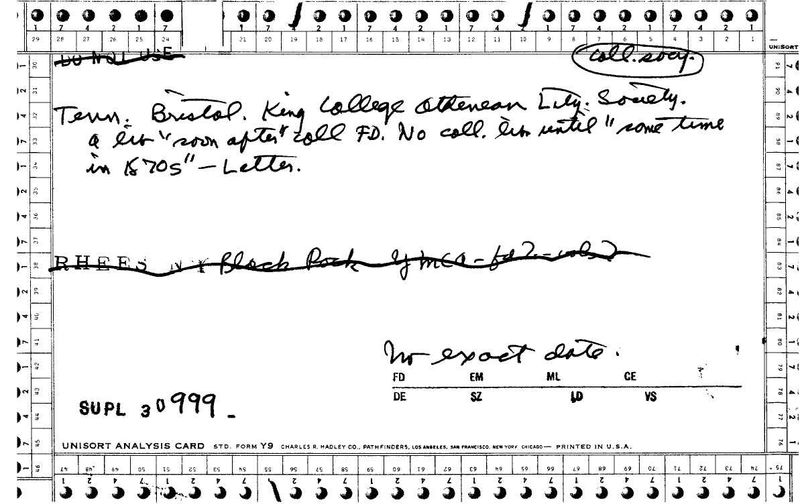 DO NOT USE
coll. socy.
Tenn. Bristol. King College Othenean Lity. Society.
a lib "soon after" coll FD. No coll. lib until "some time
in 1870s" — Letter.
RHEES NY Black Rock YMCA - fd? - vols?
No exact date.
FD EM ML CE
DE SZ LD VS
SUPL 30999-
UNISORT ANALYSIS CARD STD. FORM Y9 CHARLES R. HADLEY CO., PATHFINDERS, LOS ANGELES, SAN FRANCISCO, NEW YORK CHICAGO— PRINTED IN U.S.A.
UNISORT